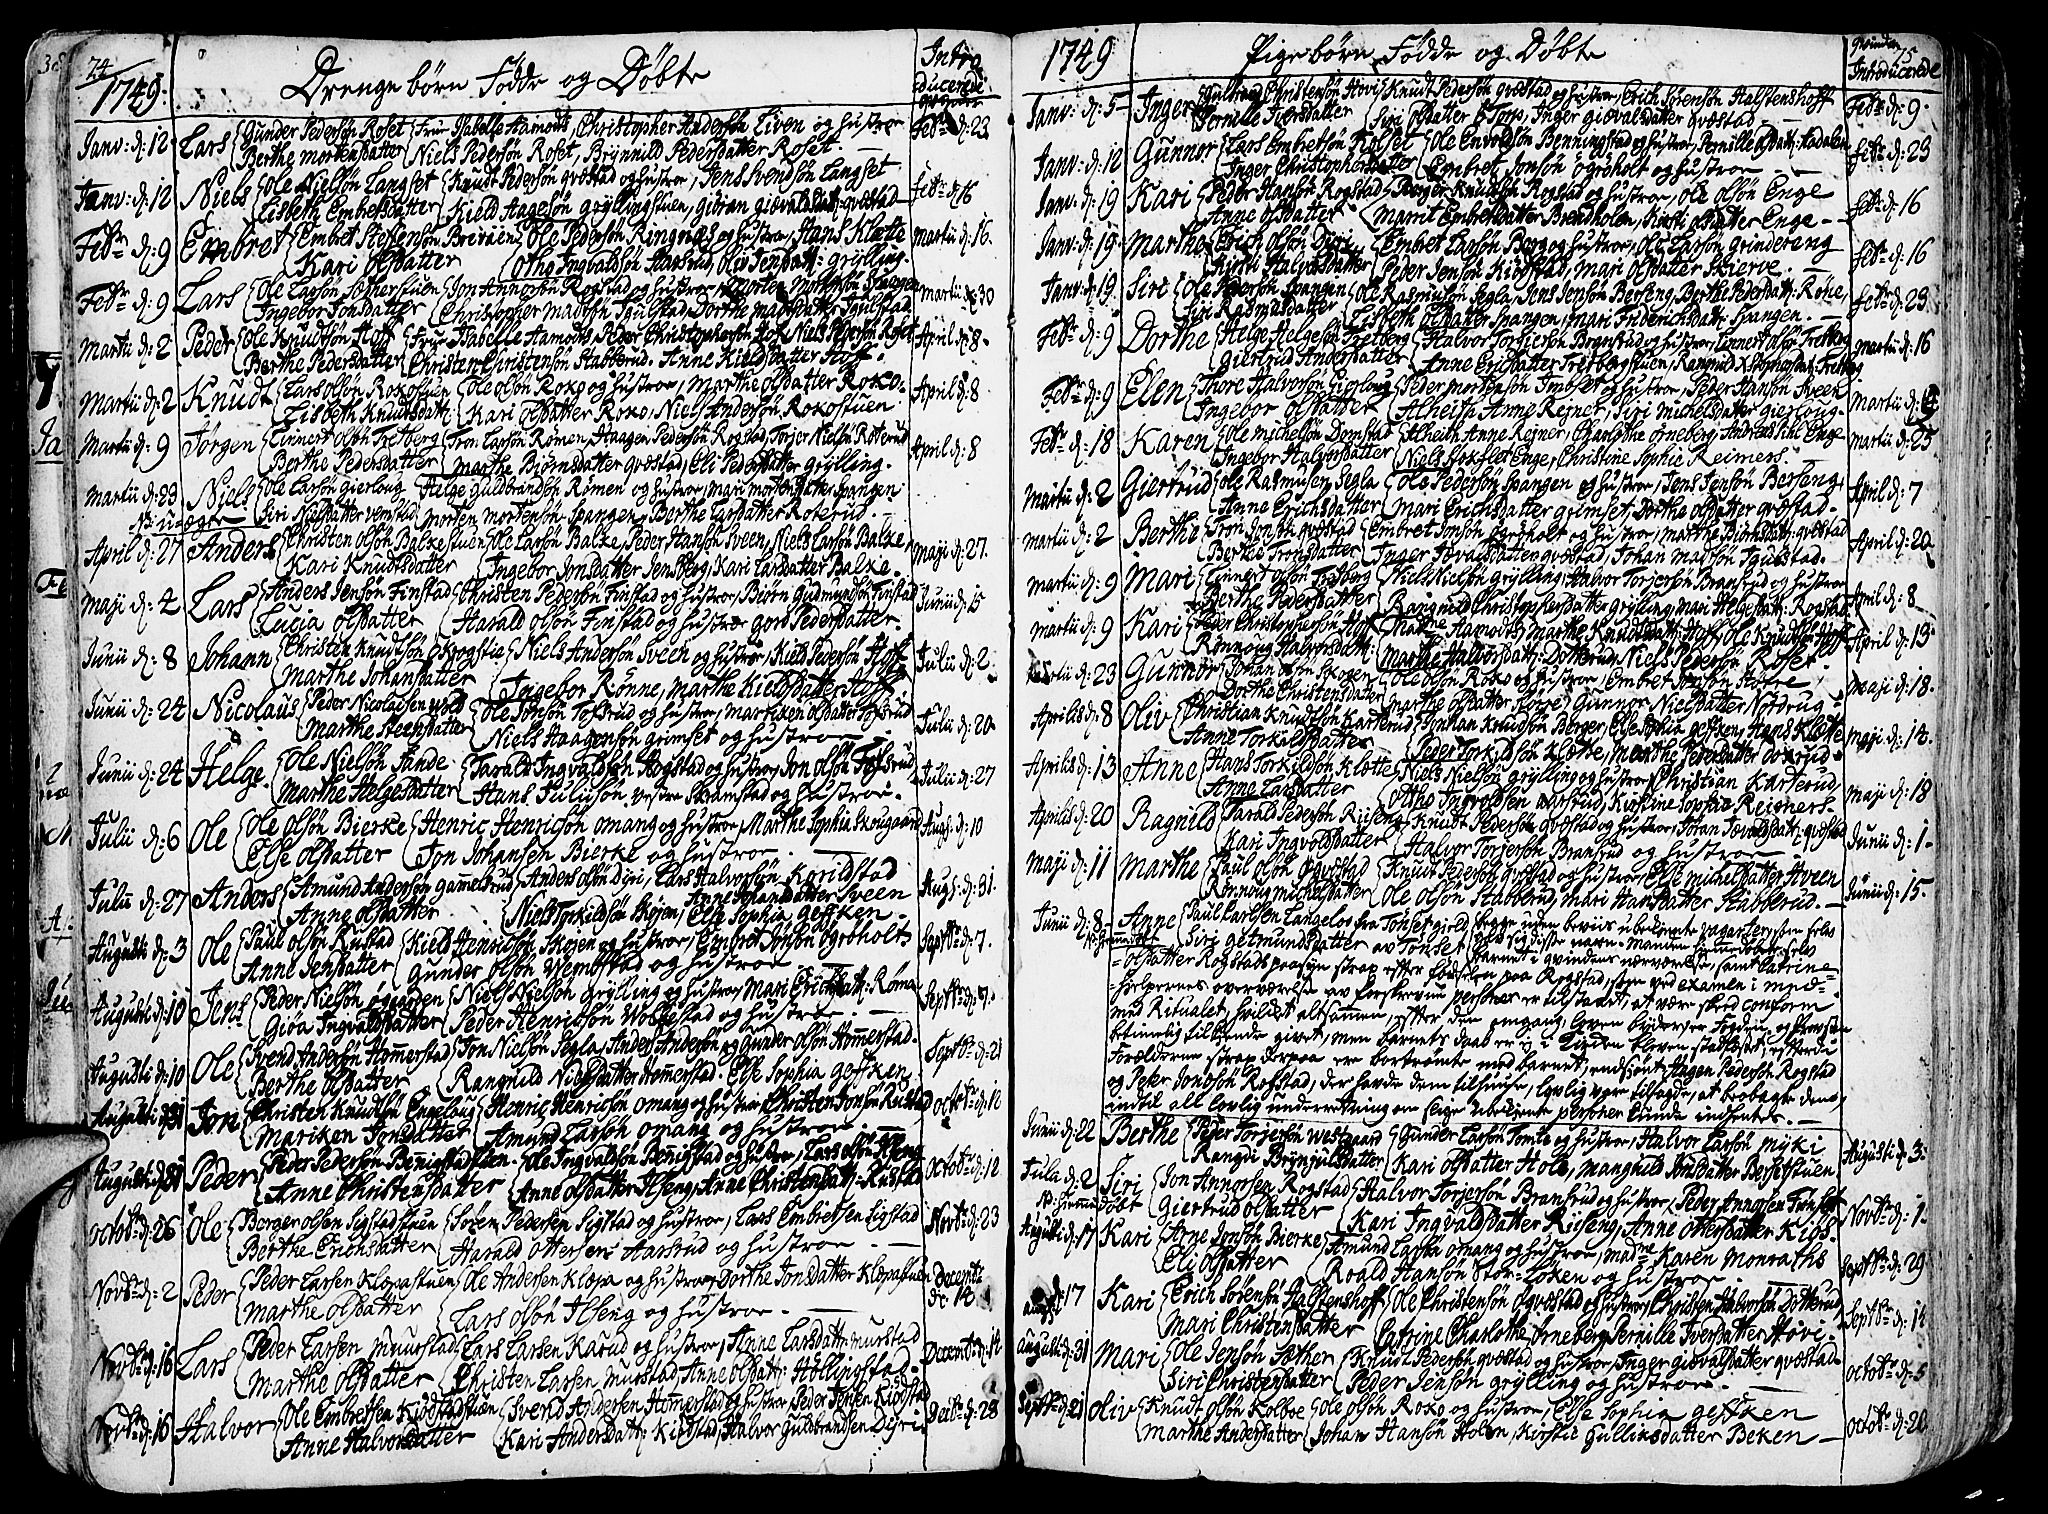 24
1749.
Drengebørn Fødde og Døbte
Intro
ducerede
Janv: d: 12
Lars
Gunder Pedersøn Roset
Berthe Mortensdatter
Frue Isabelle Aamodts, Christopher Andersøn Liven og hustroe
Niels Pedersøn Roset, Brynnild Pedersdatter Roset.
Febr: d: 23
Janv: d: 12
Niels
Ole Nielsøn Langset
Lisbeth Embretsdatter
Knudt Pedersøn qvæstad og hustroe, Jens Svendsøn Langset
Kield Aagesøn gryllingstuen, giøran giævaldsdatt: qvæstad
Febr: d: 16
Febr: d: 9
Embret
Embret Steffensøn Brevøen
Kari olsdatter
Ole Pedersøn Ringnæs og hustroe, Hans Klætte
Otho Ingvaldsøn Aasrud, oliv Jensdatt: grylling.
Martii d: 16.
Febr: d: 9
Lars
Ole Larsøn Sætnerstuen
Ingebor Jonsdatter
Jon Annorsøn Rogstad og hustroe, Morten Mortensøn Spangen
Christopher Madtsøn Igulstad, Dorthe Madtsdatter Igulstad
Martii d: 30
Martii d: 2
Peder
Ole Knudtsøn Hoff
Berthe Pedersdatter
Frue Isabelle Aamodts, Peder Christophersøn Hof, Niels Pedersøn Roset
Christen Christensøn Stabberud. Anne Kieldsdatter Hoff.
April d: 8.
Martii d: 2
Knudt
Lars olsøn Rokostuen
Lisbeth Knudtsdatt:
Ole olsøn Roko og hustroe, Marthe olsdatter Roko.
Kari olsdatter Roko, Niels Andersøn Rokostuen
April d: 8
Martii d: 9
Jørgen
Linnert olsøn Tretberg
Berthe Pedersdatter
Tron Larsøn Rømen, Haagen Pedersøn Rogstad, Torjer Nielsøn Roterud
Marthe Biørnsdatter qvæstad, Eli Pedersdatter grylling.
April d: 8
Martii d: 23
Niels
Ole Larsøn gierloug
Siri Nielsdatter Vemstad
Helge guldbrandsøn Rømen og hustroe, Mari Mortensdatter Spangen
Morten Mortensøn Spangen, Berthe Larsdatter Roterud.
April d: 27
Anders
Christen olsøn Balkestuen
Kari Knudtsdatter
Ole Larsøn Balke, Peder Hansøn Sveen, Niels Larsøn Balke,
Ingebor Jonsdatter Jensberg, Kari Larsdatter Balke.
Maji d: 27.
Maji d: 4
Lars
Anders Jensøn Finstad
Lucia olsdatter
Christen Pedersøn Finstad og hustroe, Biørn Gudmundsøn Finstad
Harald olsøn Finstad og hustroe gord Pedersdatter.
Junii d: 15
Junii d: 8
Johann
Christen Knudtsøn Krogstie
Marthe Johansdatter
Niels Andersøn Sveen og hustroe, Kield Pedersøn Hoff
Ingebor Rønne, Marthe Kieldsdatter Hoff
Julii d: 2.
Junii d: 24
Nicolaus
Peder Nicolaisen wold
Marthe Steensdatter
Ole Simsøn Tofsrud og hustroe, Mariken olsdatter Tofsrud
Niels Haagensøn grimset og hustroe
Julii d: 20
Junii d: 24
Helge
Ole Nielsøn Sande
Marthe Helgesdatter
Tarald Ingvaldsøn Hogstad og hustroe, Jon olsøn Tofsrud,
Hans Juliisøn vestre Skramstad og hustroe.
Julii d: 27
Julii d: 6
Ole
Ole olsøn Bierke
Else olsdatter
Henric Henricsøn Omang og hustroe, Marthe Sophia Skougaard
Jon Johansen Bierke og hustroe.
Aug: d: 10
Julii d: 27
Anders
Amund Andersøn gammelrud
Anne olsdatter
Anders olsøn Dyri, Lars Halvorsøn Karildstad
Anne Johansdatter Sveen
Niels Torkildsøn Brøjen, Else Sophia geffken.
Aug: d: 31.
Augusti d: 3
Ole
Paul olsøn Rustad
Anne Jensdatter
Kield Henricsøn Skojen og hustroe, Embret Jonsøn Ogroholt
Gunder olsøn Wembstad og hustroe
Septbr: d: 7.
Augusti d: 10
Jens
Peder Nielsøn øggarden
Giøa Ingvaldsdatter
Niels Nielsøn grylling og hustroe, Mari Erichsdatt: Røma
Peder Henricsøn Wollestad og hustroe.
Septbr: d: 7.
Augusti d: 10
Ole
Svend Andersøn Hommerstad
Berthe olsdatter
Jon Nielsøn Segla, Anders Andersøn og Gunder olsøn Hommerstad.
Rangnild Nielsdatter Hommerstad. Else Sophia geffken
Septbr: d: 21
Augusti d: 31
Jon
Christen Knudtsøn Engeloug
Mariken Jonsdatter
Henric Henricsøn Omang og hustroe, Christen Jonsøn Rustad
Amund Larsøn Omang og hustroe
Octobr: d: 12
Augusti d: 31
Peder
Peder Pedersøn Benigstadstuen.
Anne Christensdatter
Ole Ingvaldsøn Benigstad og hustroe, Lars olsøn Ilseng
Anne olsdatter Ilseng, Anne Christensdatt: Rustad
Octobr: d: 12
Octobr: d: 26
Ole
Børger olsen Sigstadstuen
Berthe Erichsdatter
Søren Pedersen Sigstad og hustroe, Lars Embretsen Sigstad
Harald ottersen Aarsrud og hustroe.
Novbr: d: 23
Novbr: d: 2
Peder
Peder Larsen Klopastuen
Marthe olsdatter
Ole Andersen Klopa og hustroe, Dorthe Jonsdatter Klopastuen
Lars olsøn Ilseng og hustroe.
Decembr: d: 14
Novbr: d: 16
Lars
Peder Larsen Muurstad
Marthe olsdatter
Lars Larsen Karud og hustroe, Anne Larsdatt: Murstad
Christen Larsen Murstad, Anne olsdatt: Hollingstad.
Decembr: d: 14
Novbr: d: 16
Halvor
Ole Embretsen Kiøstadstuen
Anne Halvorsdatter
Svend Andersen Hommerstad og hustroe, Peder Jensen Kiøstad
Kari Andersdatt: Kiøstad, Halvor Guldbrandsen Dyri
Decbr: d: 28
1749
Pigebørn Fødde og Døbte
75.
qvinder
Introducerede
Janv: d: 5
Inger
Gulbrand Christensøn Hovi
Pernille Iversdatter
Knudt Pedersøn qvæstad og hustroe, Erich Sørensøn Halstenshoff
Siri olsdatter Torp, Inger giævalsdatter qvæstad.
Febr: d: 9.
Janv: d: 12
Gunnor
Lars Embretsøn Fiølset
Inger Christophersdatter
Ole Envoldsøn Benningstad og hustroe, Pernille olsdatt: Aadalen
Embret Jonsøn ogroholt og hustroe
Febr: d: 23
Janv: d: 19
Kari
Peder Hansøn Rogstad
Anne olsdatter
Børger Knudtsøn Rogstad og hustroe, Ole olsøn Enge
Marrit Embretsdatter Brendholen, Karti olsdatter Enge
Febr: d: 16
Janv: d: 19
Marthe
Erich olsøn Dyri
Kirsti Halvorsdatter
Embret Larsøn Berg og hustroe, Ole Larsøn grindereng
Peder Jensøn Kiøstad, Mari olsdatter Skierve.
Febr: d: 16
Janv: d: 19.
Siri
Ole Pedersøn Spangen
Siri Rasmusdatter
Ole Rasmusøn Segla, Jens Jensøn Berseng, Berthe Pedersdatt: Røne,
Lisbeth olsdatter Spangen, Mari Friderichsdatt: Spangen.
Febr: d: 23
Febr: d: 9
Dorthe
Helge Helgesøn Tretberg
Giertrud Andersdatter
Halvor Torjersøn Bransrud og hustroe, Linnert olsøn Tretberg
Anne Erichsdatter Tretbergstuen, Rangnild Xstophersdatt: Tretberg
Martii d: 16
Febr: d: 9
Elen
Thore Halvorsøn Gierloug
Ingebor olsdatter
Peder Mortensøn Imbset og hustroe, Peder Hansøn Sveen
Alheith Anne Rejner, Siri Michelsdatter gierloug.
Martii d:
Febr: d: 18
Karen
Ole Michelsøn Domstad
Ingebor Halvorsdatter
Alheith Anne Rejner, Charlothe Orneberg, Andreas Sihl Enge
Niels Foxslet Enge, Christine Sophie Reimers.
Martii d: 25
Martii d: 2
Giertrud
Ole Rasmusen Segla
Anne Erichsdatter
Ole Pedersøn Spangen og hustroe, Jens Jensøn Berseng,
Mari Erichsdatter grimset, Dorthe olsdatter qvæstad.
April d: 7
Martii d: 2
Berthe
Tron Jonsøn qvæstad
Berthe Tronsdatter
Embret Jonsøn Egroholt og hustroe, Marthe Biørnsdatt: qvæstad
Inger Jævalsdatter qvæstad, Johan Madtsøn Igulstad.
April d: 20
Martii d: 9
Mari
Linnert olsøn Tretberg
Berthe Pedersdatter
Niels Nielsøn grylling, Halvor Torjersøn Bransrud og hustroe
Rangnild Christophersdatter grylling, Mari Helgesdatt: Rogstad
April d: 8
Martii d: 9
Kari
Peder Christophersøn Hoff
Rønnoug Halvorsdatt:
Madme Aamodts, Marthe Knudtsdatt: Hoff, Ole Knudtsøn Hoff
Marthe Halvorsdatt: Dotterud, Niels Pedersøn Roset.
April d: 13.
Martii d: 23
Gunnor
Johan olsøn Skojen
Dorthe Christensdatter
Ole olsøn Roko og hustroe, Embret Jonsøn Hofre
Marthe olsdatter Hofre, Gunnor Nielsdatter Notdrug.
Maji d: 18.
Aprilis d: 8
Oliv
Christian Knudtsøn Karterud
Anne Torkilsdatter
Johan Knudtsøn Berger, Else Sophia geffken, Hans Klætte
Peder Torkildsøn Klætte, Marthe Pedersdatter Dokrud.
Maji d: 14.
Aprilis d: 13
Anne
Hans Torkildsøn Klætte
Anne Larsdatter
Niels Nielsøn grylling og hustroe, Christian Karterud,
Otthe Ingvoldsen Aarstrud, Kirstine Sophie Reigners.
Maji d: 18
Aprilis d: 20
Ragnild
Tarald Pedersøn Riiseng
Kari Ingvoldsdatter
Knudt Pedersøn qvæstad og hustroe, Jøran Jævoldsdatt: qvæstad
Halvor Torjersøn Bransrud og hustroe
Junii d: 1.
Maji d: 11
Marthe
Paul olsøn qvæstad
Rønnoug Michelsdatter
Knudt Pedersøn qvæstad og hustroe, Else Michelsdatter Hveen
Ole olsøn Stabberud, Mari Hansdatter Stabberud.
Junii d: 15.
Junii d: 8.
Anne
Paul Carlsen Langelos fra Tønset gield
Siri getmundsdatter av Tønset
begge uden beviis ubekiente
olsdatter Rogstads paasyn strax efter fødselen paa Rogstad, som ved examen i med-
hielpernes overværelse av forskrevne personer er tilstaaet, at være skeed conform
med Ritualet, hvilket altsammen, efter den omgang, loven byder
betimelig tilkiende givet, men barnets daab er ej i Kirken bleven stadfæstet, efterdi
Forældrene strax derpaa ere bortrømte med barnet, endskiønt Hagen Pedersøn Rogstad
og Peter Jonssøn Rogstad, der havde dem tilhuuse, lovlig var tilsagde, at beobagte dem,
indtil all lovlig underretning om slige ubekiente personer kunde indhentes.
Junii d: 22
Berthe
Peder Torjersøn Westgaard
Rangdi Brynjulsdatter
Gunder Larsøn Tomte og hustroe, Halvor Larsøn Myki
Kari olsdatter Hole, Mangnild Jonsdatter Berset stuen
Augusti d: 3.
Jula d: 2
Siri
Jon Annorsen Rogstad
Giertrud olsdatter
Halvor Torjersøn Bransrud og hustroe, Peder Annorsen Fiønset
Kari Ingvaldsdatter Riiseng, Anne ottersdatter Kiøs.
Novbr: d: 1.
Augusti d: 17
Kari
Arne Jonsøn Bierke
Eli olsdatter
Amund Larsøn Omang og hustroe, Madme Karen Monraths
Roald Hansøn Stor-Løken og hustroe.
Septbr: d: 29
Augusti d: 17
Kari
Erich Sørensøn Halstenshoff
Mari Christensdatter
Ole Christensøn qvæstad og hustroe, Christen Halvorsøn Dotterud,
Catrine Charlothe Orneberg, Pernille Iversdatter Hovi.
Septbr: d: 14
Augusti d: 31
Mari
Ole Jensøn Sæther
Siri Christensdatter
Knudt Pedersøn qvæstad og hustroe, Inger giævalsdatter qvæstad
Peder Jensøn grylling og hustroe.
Octobr: d: 5
Septbr: d: 21
Oliv
Knudt olsøn Kolboe
Marthe Andersdatter
Ole olsøn Roko og hustroe, Else Sophia geffken
Johan Hansøn Holen, Kirstie Gulliksdatter Beken
Octobr: d: 20